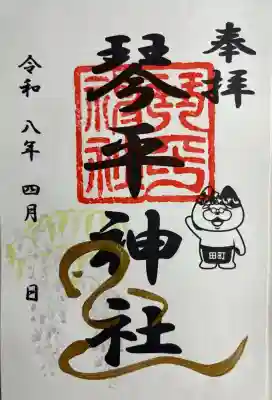 奉拝
琴平神社
令和八年四月 日
琴平神社
田町